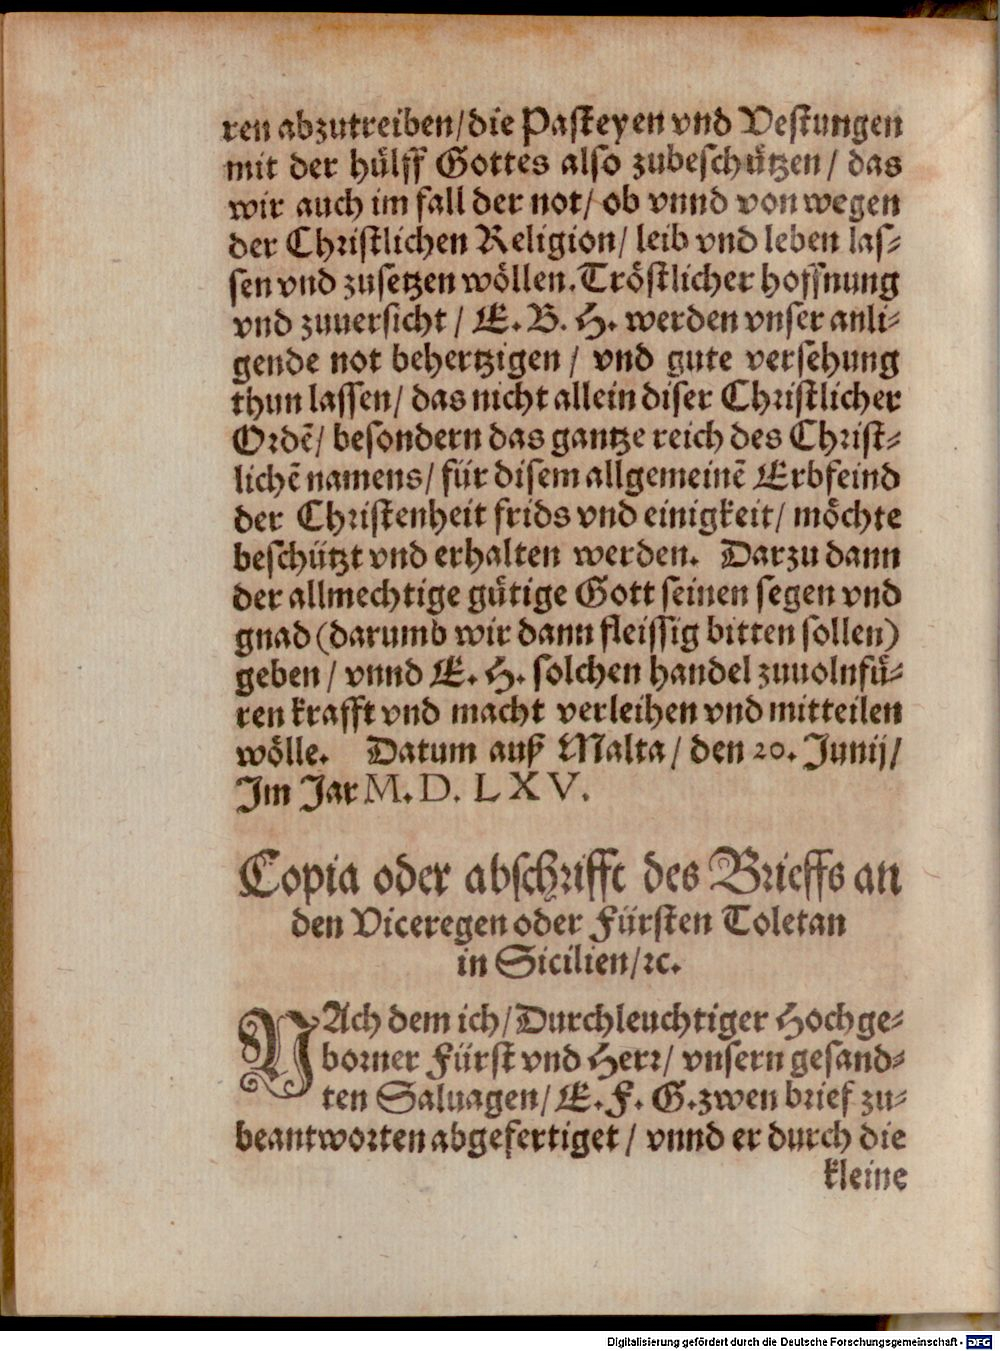 ren abzutreiben/die Pasteyen vnd Vestungen
mit der hülff Gottes also zubeschützen/ das
wir auch im fall der not/ ob vnnd von wegen
der Christlichen Religion/ leib vnd leben las-
sen vnd zusetzen wöllen. Tröstlicher hoffnung
vnd zuuersicht / E. B. H. werden vnser anli-
gende not behertzigen / vnd gute versehung
thun lassen/ das nicht allein diser Christlicher
Ordẽ/ besondern das gantze reich des Christ-
lichẽ namens/ für disem allgemeinẽ Erbfeind
der Christenheit frids vnd einigkeit/ möchte
beschützt vnd erhalten werden. Darzu dann
der allmechtige gütige Gott seinen segen vnd
gnad (darumb wir dann fleissig bitten sollen)
geben / vnnd E. H. solchen handel zuuolnfü-
ren krafft vnd macht verleihen vnd mitteilen
wölle. Datum auß Malta / den 20. Junij/
Im Jar M. D. L X V.
Copia oder abschrifft des Brieffs an
den Viceregen oder Fürsten Toletan
in Sicilien/ꝛc.
NAch dem ich/Durchleuchtiger Hochge-
borner Fürst vnd Herr/ vnsern gesand-
ten Saluagen/ E. F. G. zwen brief zu-
beantworten abgefertiget / vnnd er durch die
kleine
Digitalisierung gefördert durch die Deutsche Forschungsgemeinschaft - DFG